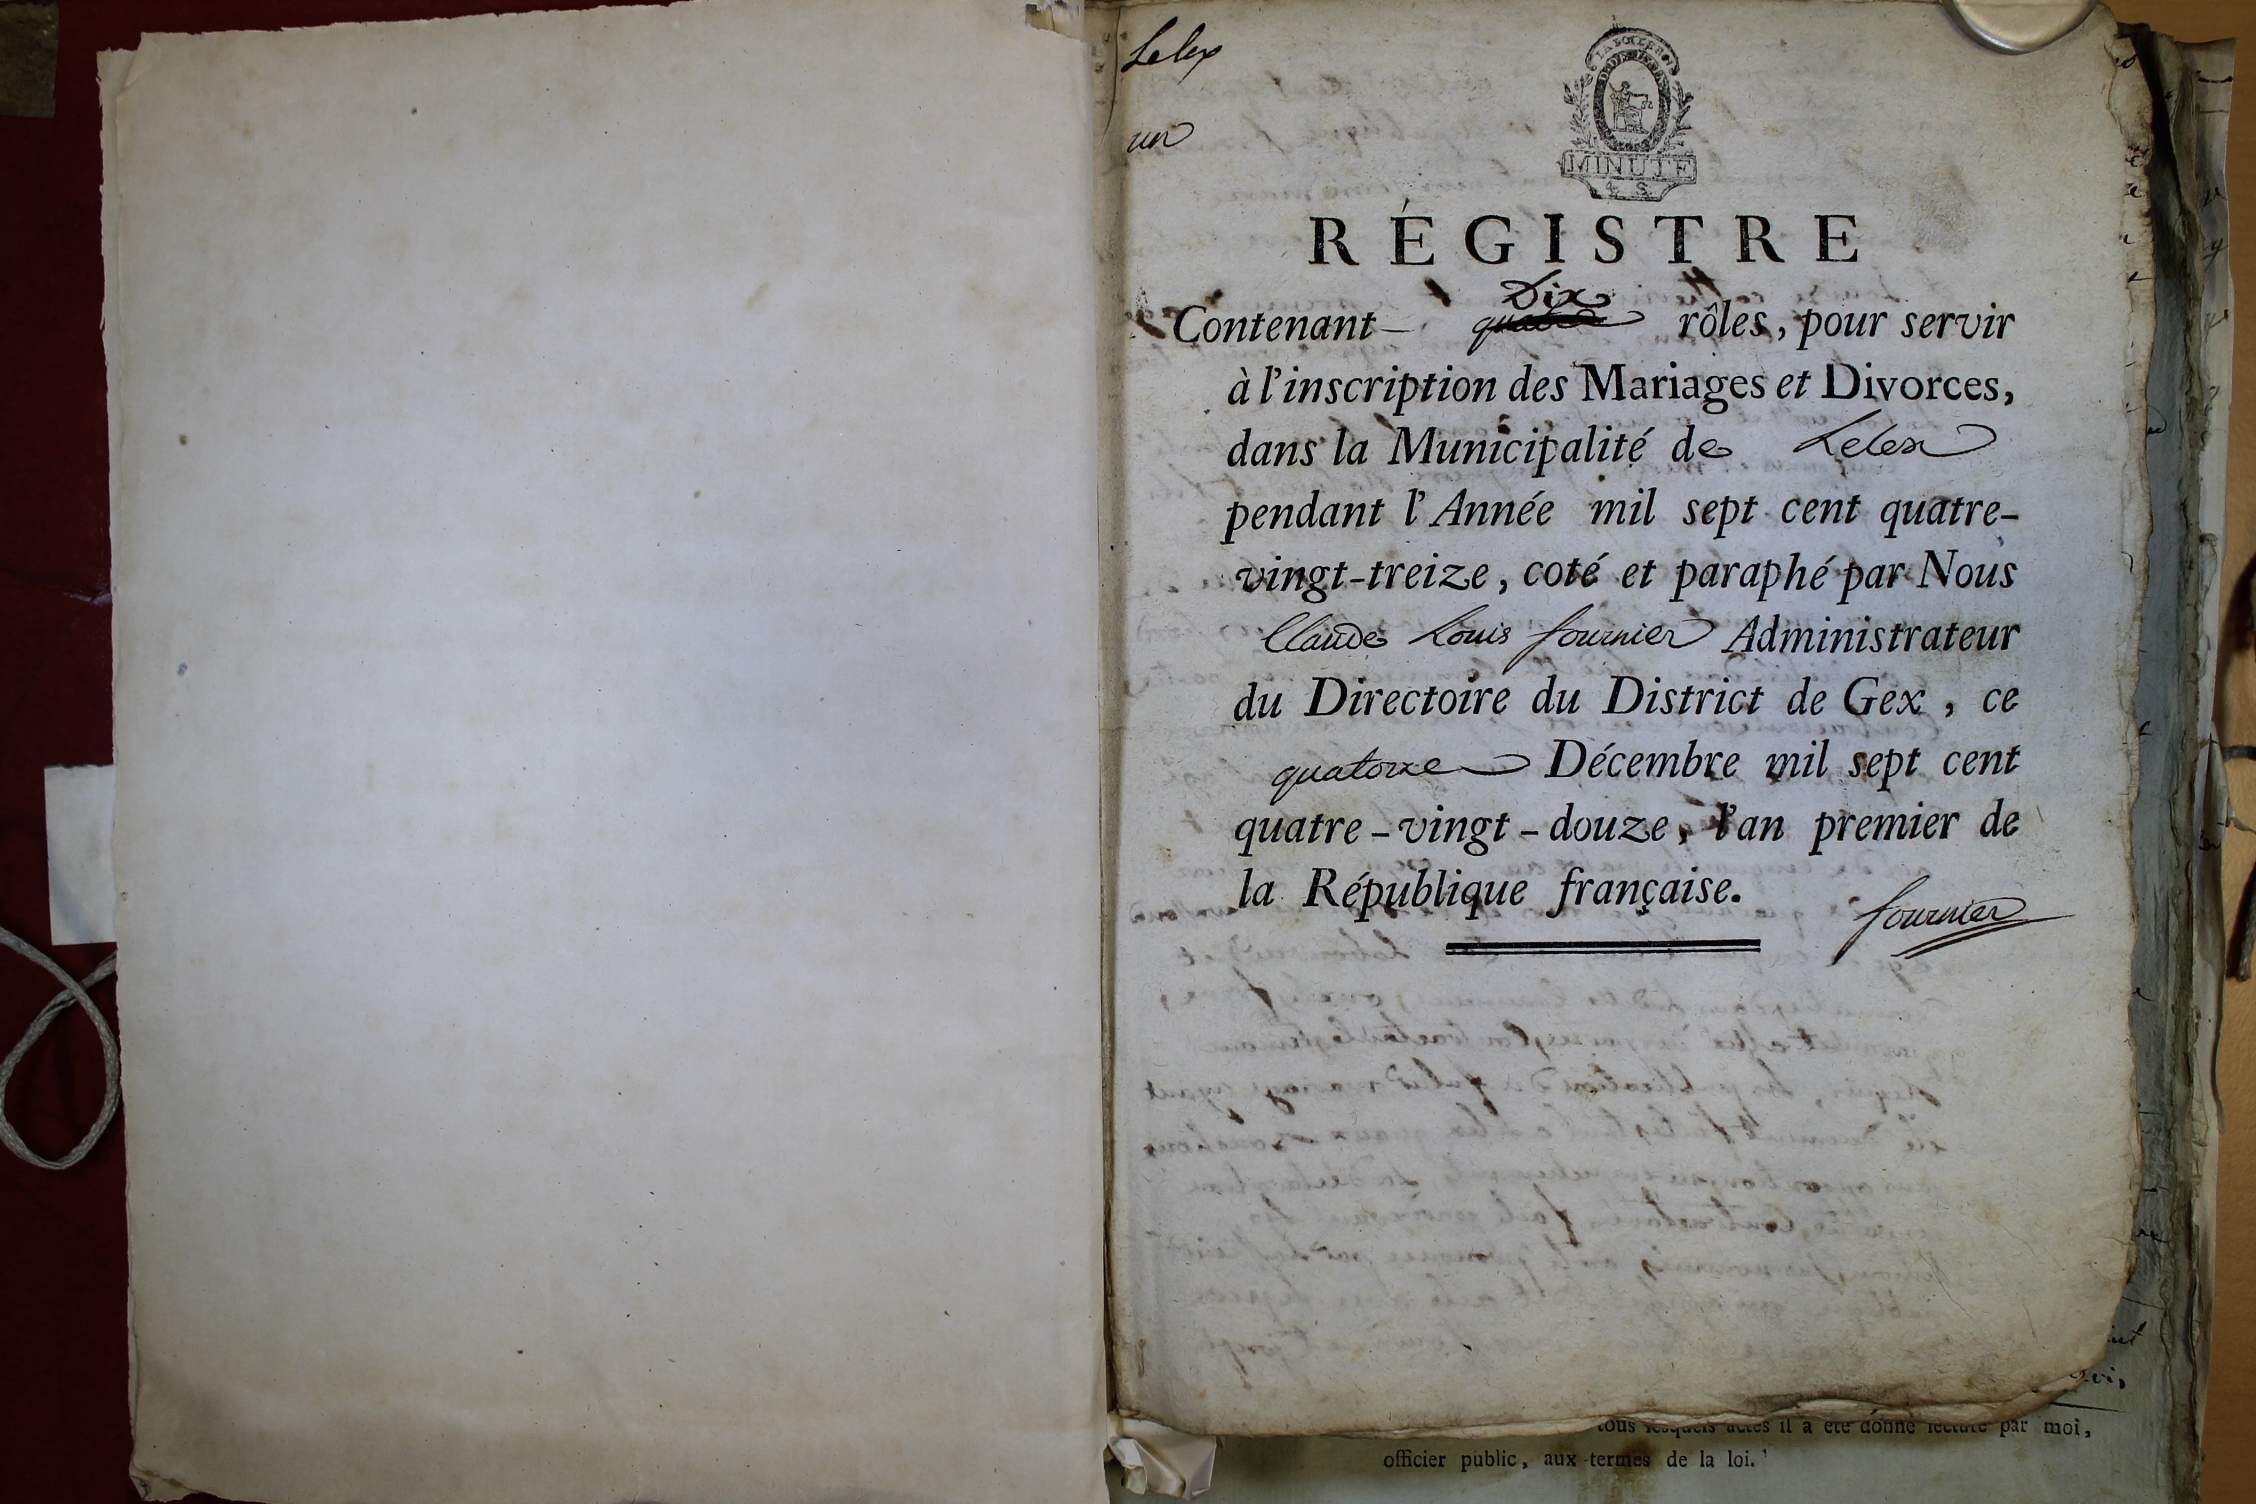 Lelex
un
MINUTE
4 S.
RÉGISTRE
Dix
Contenant quatre rôles, pour servir
à l'inscription des Mariages et Divorces,
dans la Municipalité de Lelex
pendant l'Année mil sept cent quatre-
vingt-treize, coté et paraphé par Nous
Claude Louis fournier Administrateur
du Directoire du District de Gex, ce
quatorze Décembre mil sept cent
quatre-vingt-douze, l'an premier de
la République française.
fournier
tous lesquels actes il a été donné lecture par moi,
officier public, aux termes de la loi.